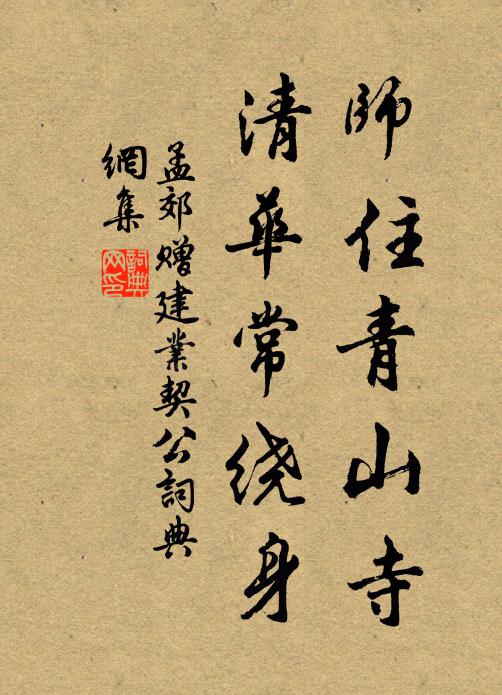 師住青山寺
清華常绕身
孟郊赠建業契公詞典
網集
詞典
网印